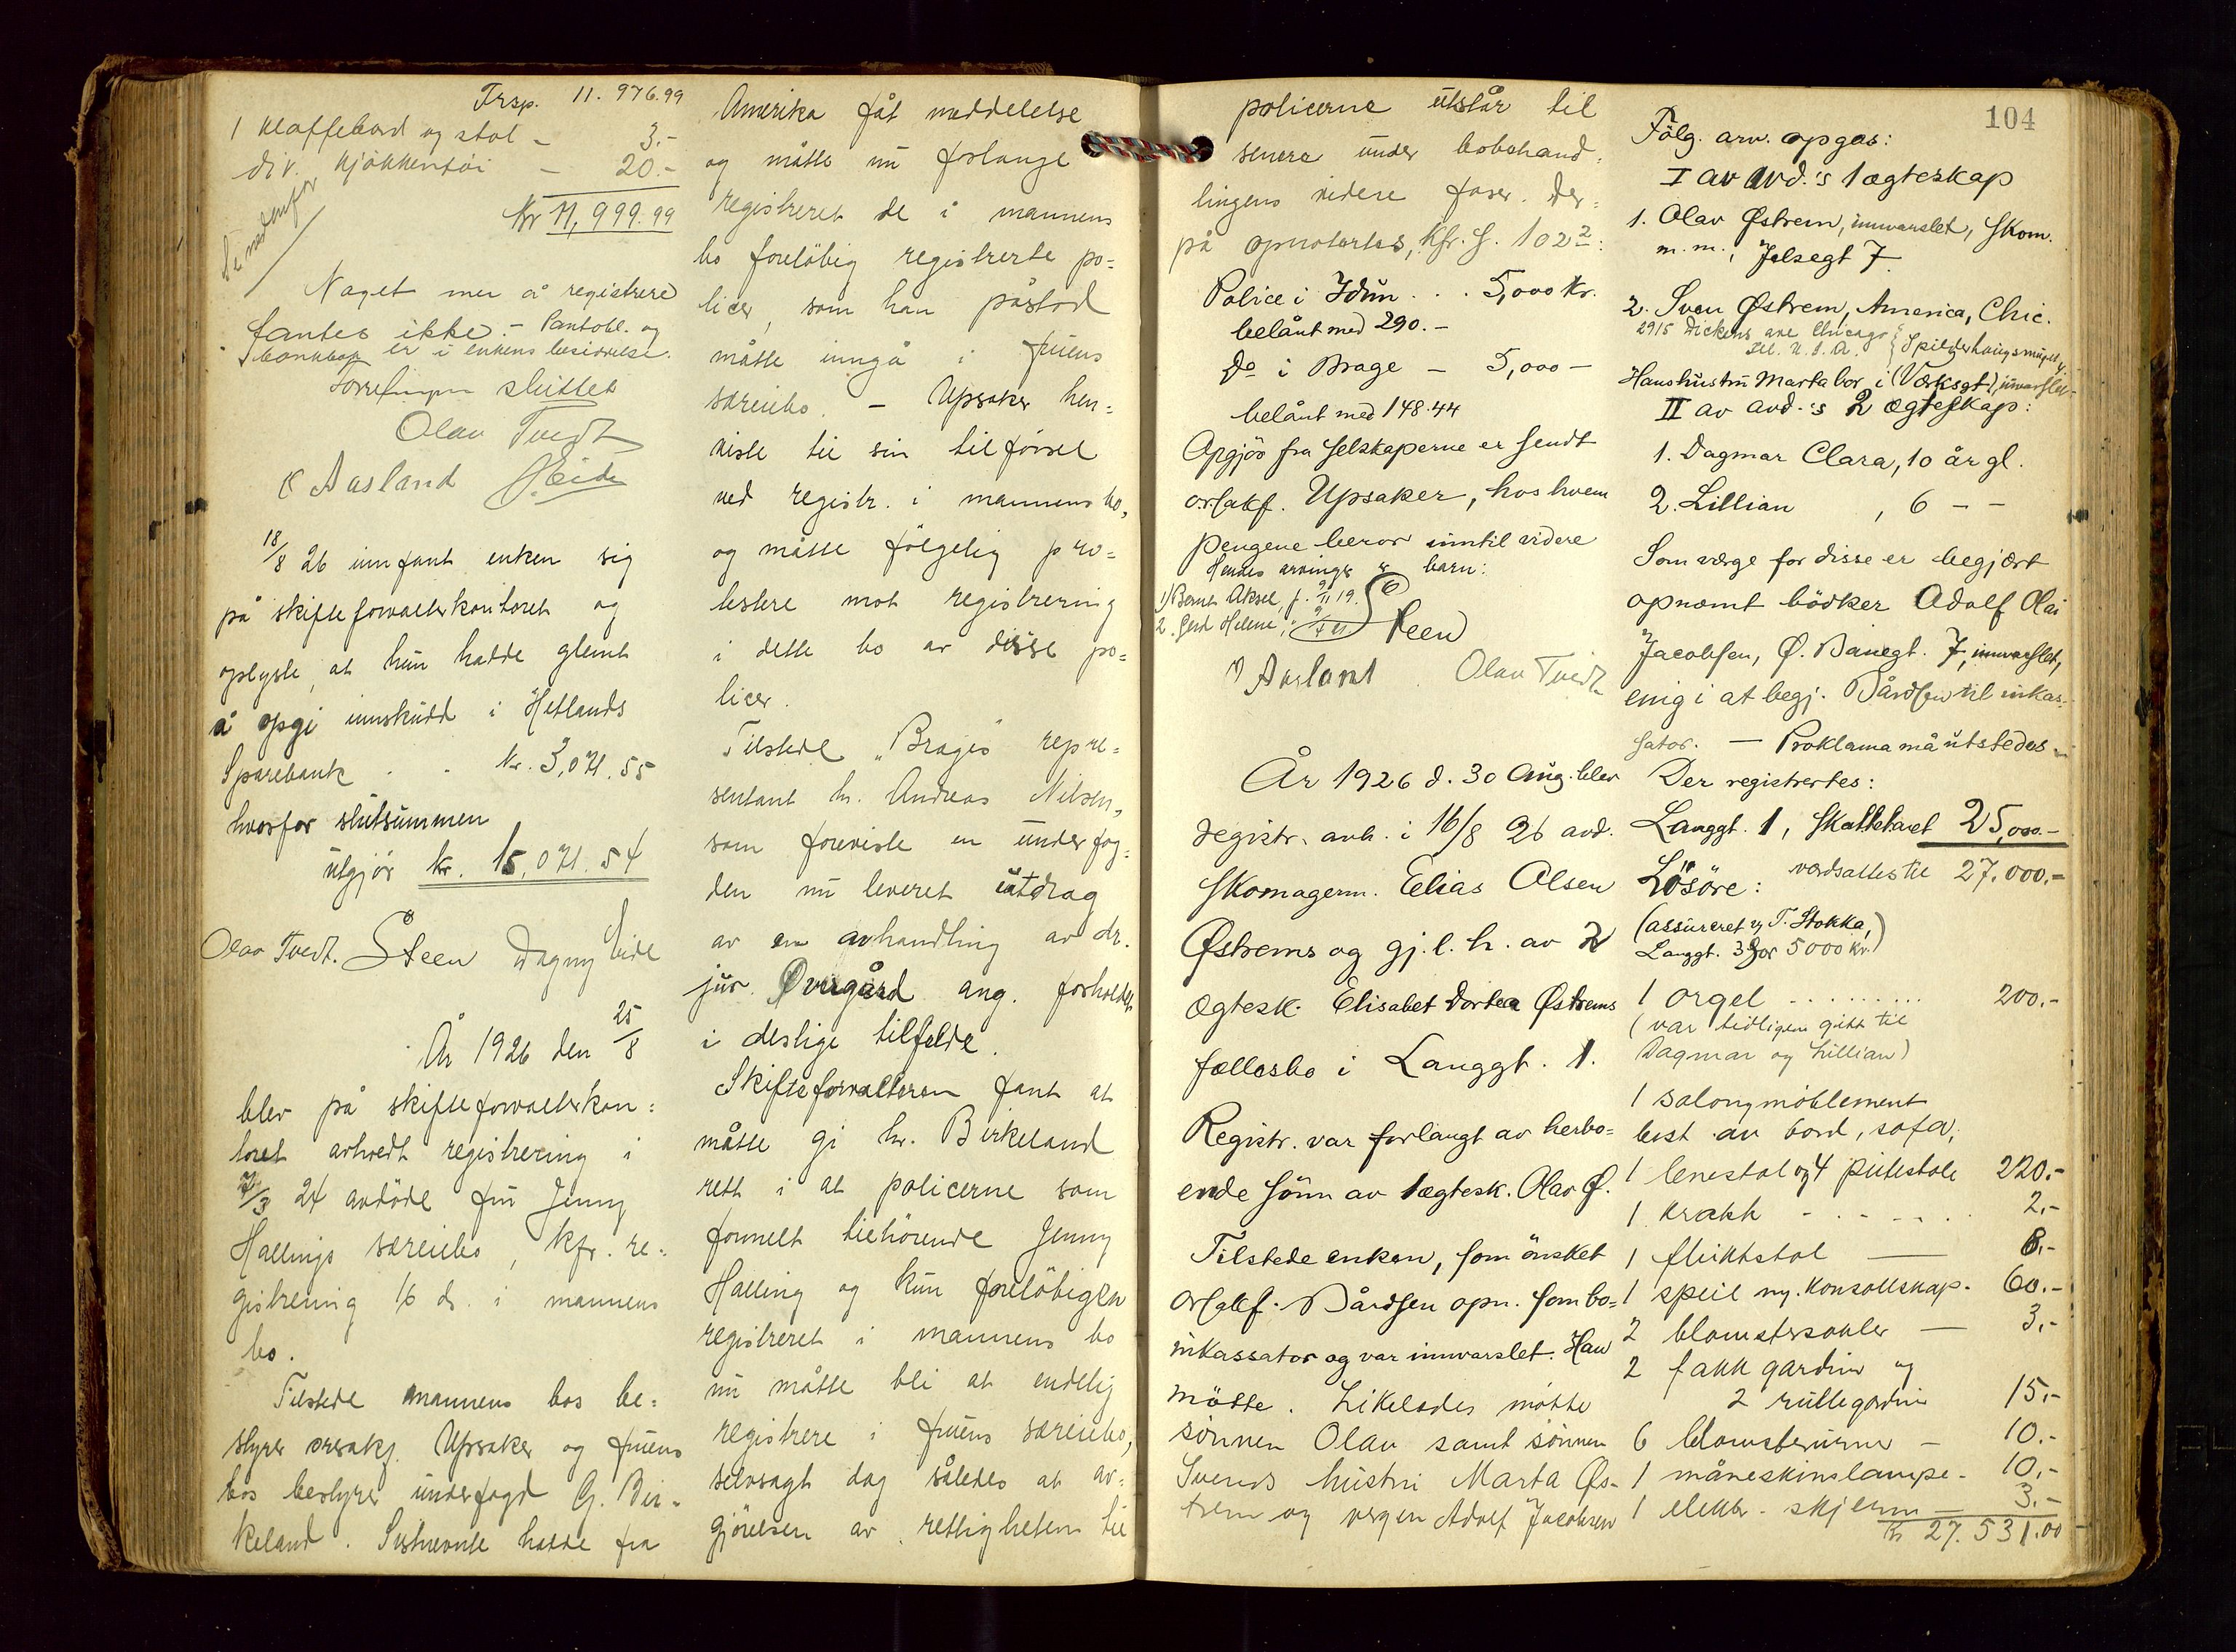 Trsp. 11.976.99
1 klaffebord og stol - 3.-
div. kjøkkentøi - 20.-
Kr 11,999.99
Se nedenfor
Noget mer å registrere
fantes ikke. - Pantobl. og
bankbok er i enkens besiddelse.
Forretningen sluttet
Olav Tvedt
O Aasland Eide
18/8 26 innfant enken sig
på skifteforvalterkontoret og
oplyste, at hun hadde glemt
å opgi innskudd i Hetlands
Sparebank . . Kr. 3,071.55
hvorfor slutsummen
utgjør kr. 15,071.54
Olav Tvedt. Steen Dagny Eide
År 1926 den 25/8
blev på skifteforvalterkon:
toret avholdt registrering i
/3 24 avdøde fru Jenny
Hallings særeiebo, kfr. re-
gistrering 16 ds. i mannens
bo.
Tilstede mannens bos be:
styrer orsakf. Upsaker og fruens
bos bestyrer underfogd G. Bir-
keland. Sistnevnte hadde fra
Amerika fåt meddelelse
og måtte nu forlange
registreret de i mannens
bo foreløbig registrerte po-
licer, som han påstod
måtte inngå i fruens
særeiebo. - Upsaker hen-
viste til sin tilførsel
ved registr. i mannens bo,
og måtte følgelig pro-
testere mot registrering
i dette bo av disse po-
licer.
Tilstede "Brages" repre-
sentant hr. Andreas Nilsen,
som foreviste en underfog-
den nu leveret utdrag
av en avhandling av dr.
jur. Øvergård ang. forholdet
i deslige tilfelde.
Skifteforvalteren fant at
måtte gi hr. Birkeland
rett i at policerne som
formelt tilhørende Jenny
Halling og kun foreløbigen
registreret i mannens bo
nu måtte bli at endelig
registrere i fruens særeiebo,
selvsagt dog således at av-
gjørelsen av rettigheten til
policerne utstår til
senere under bobehand-
lingens videre faser. Der-
på opnotertes, kfr. f. 102 2:
Police i Idun . . . 5,000 Kr.
belånt med 290.-
Do i Brage - 5,000 -
belånt med 148.44
Opgjør fra selskaperne er sendt
orsakf. Upsaker, hos hvem
pengene beror inntil videre
Hendes arvinger er barn:
1) Bernt Aksel, f. 9/11 19.
2. Gerd Helene,
Steen
O Aasland Olav Tvedt
År 1926 d. 30 Aug. blev
registr. avh. i 16/8 26 avd.
Skomagerm. Elias Olsen
Østrems og gj. l. h. av 2
ægtesk. Elisabet Dortea Østrems
fællesbo i Langgt. 1.
Registr. var forlangt av herbo-
ende sønn av 1 ægtesk. Olav Ø.
Tilstede enken, som ønsket
orsakf. Bårdsen opn. som bo-
inkassator og var innvarslet. Han
møtte. Likeledes møtte
sønnen Olav samt sønnen
Svends hustru Marta Øs-
trem og vergen Adolf Jacobsen
104
Følg. arv. opgas:
I av avd.'s 1 ægteskap
1. Olav Østrem, innvarslet, Skom.
m. m., Jelsegt 7.
2. Sven Østrem, America, Chic.
2915 Dickens ave Chicago
Ill. U. S. A.
Hans hustru Marta bor i (Verksgt) innvarslet
II av avd.'s 2 ægteskap:
1. Dagmar Clara, 10 år gl.
2. Lillian , 6 - -
Som værge for disse er begjært
opnæmt bødker Adolf Olai
Jacobsen, Ø. Banegt. 7, innvarslet,
enig i at begj. Bårdsen til inkas-
sator. - Proklama må utstedes
Der registrertes:
Langgt. 1, skattetaxt 25,000.-
værdsattes til 27.000.-
Løsøre:
(assureret v/ T. Stokka,
Langgt. 39 for 5000 kr.)
1 orgel ......... 200.-
(var tidligere gitt til
Dagmar og Lillian)
1 salongmøblement
best. av bord, sofa,
1 lenestol og 4 puttestole 220.-
1 krakk - - - - - 2,-
1 fluktstol — 8.-
1 speil m. konsollskap. 60.-
2 blomstersøiler — 3,-
2 fakk gardin og
2 rullegardin 15.-
6 blomsterurner - 10.-
1 måneskinslampe - 10,-
1 elektr. skjerm — 3.-
Kr 27.531.00